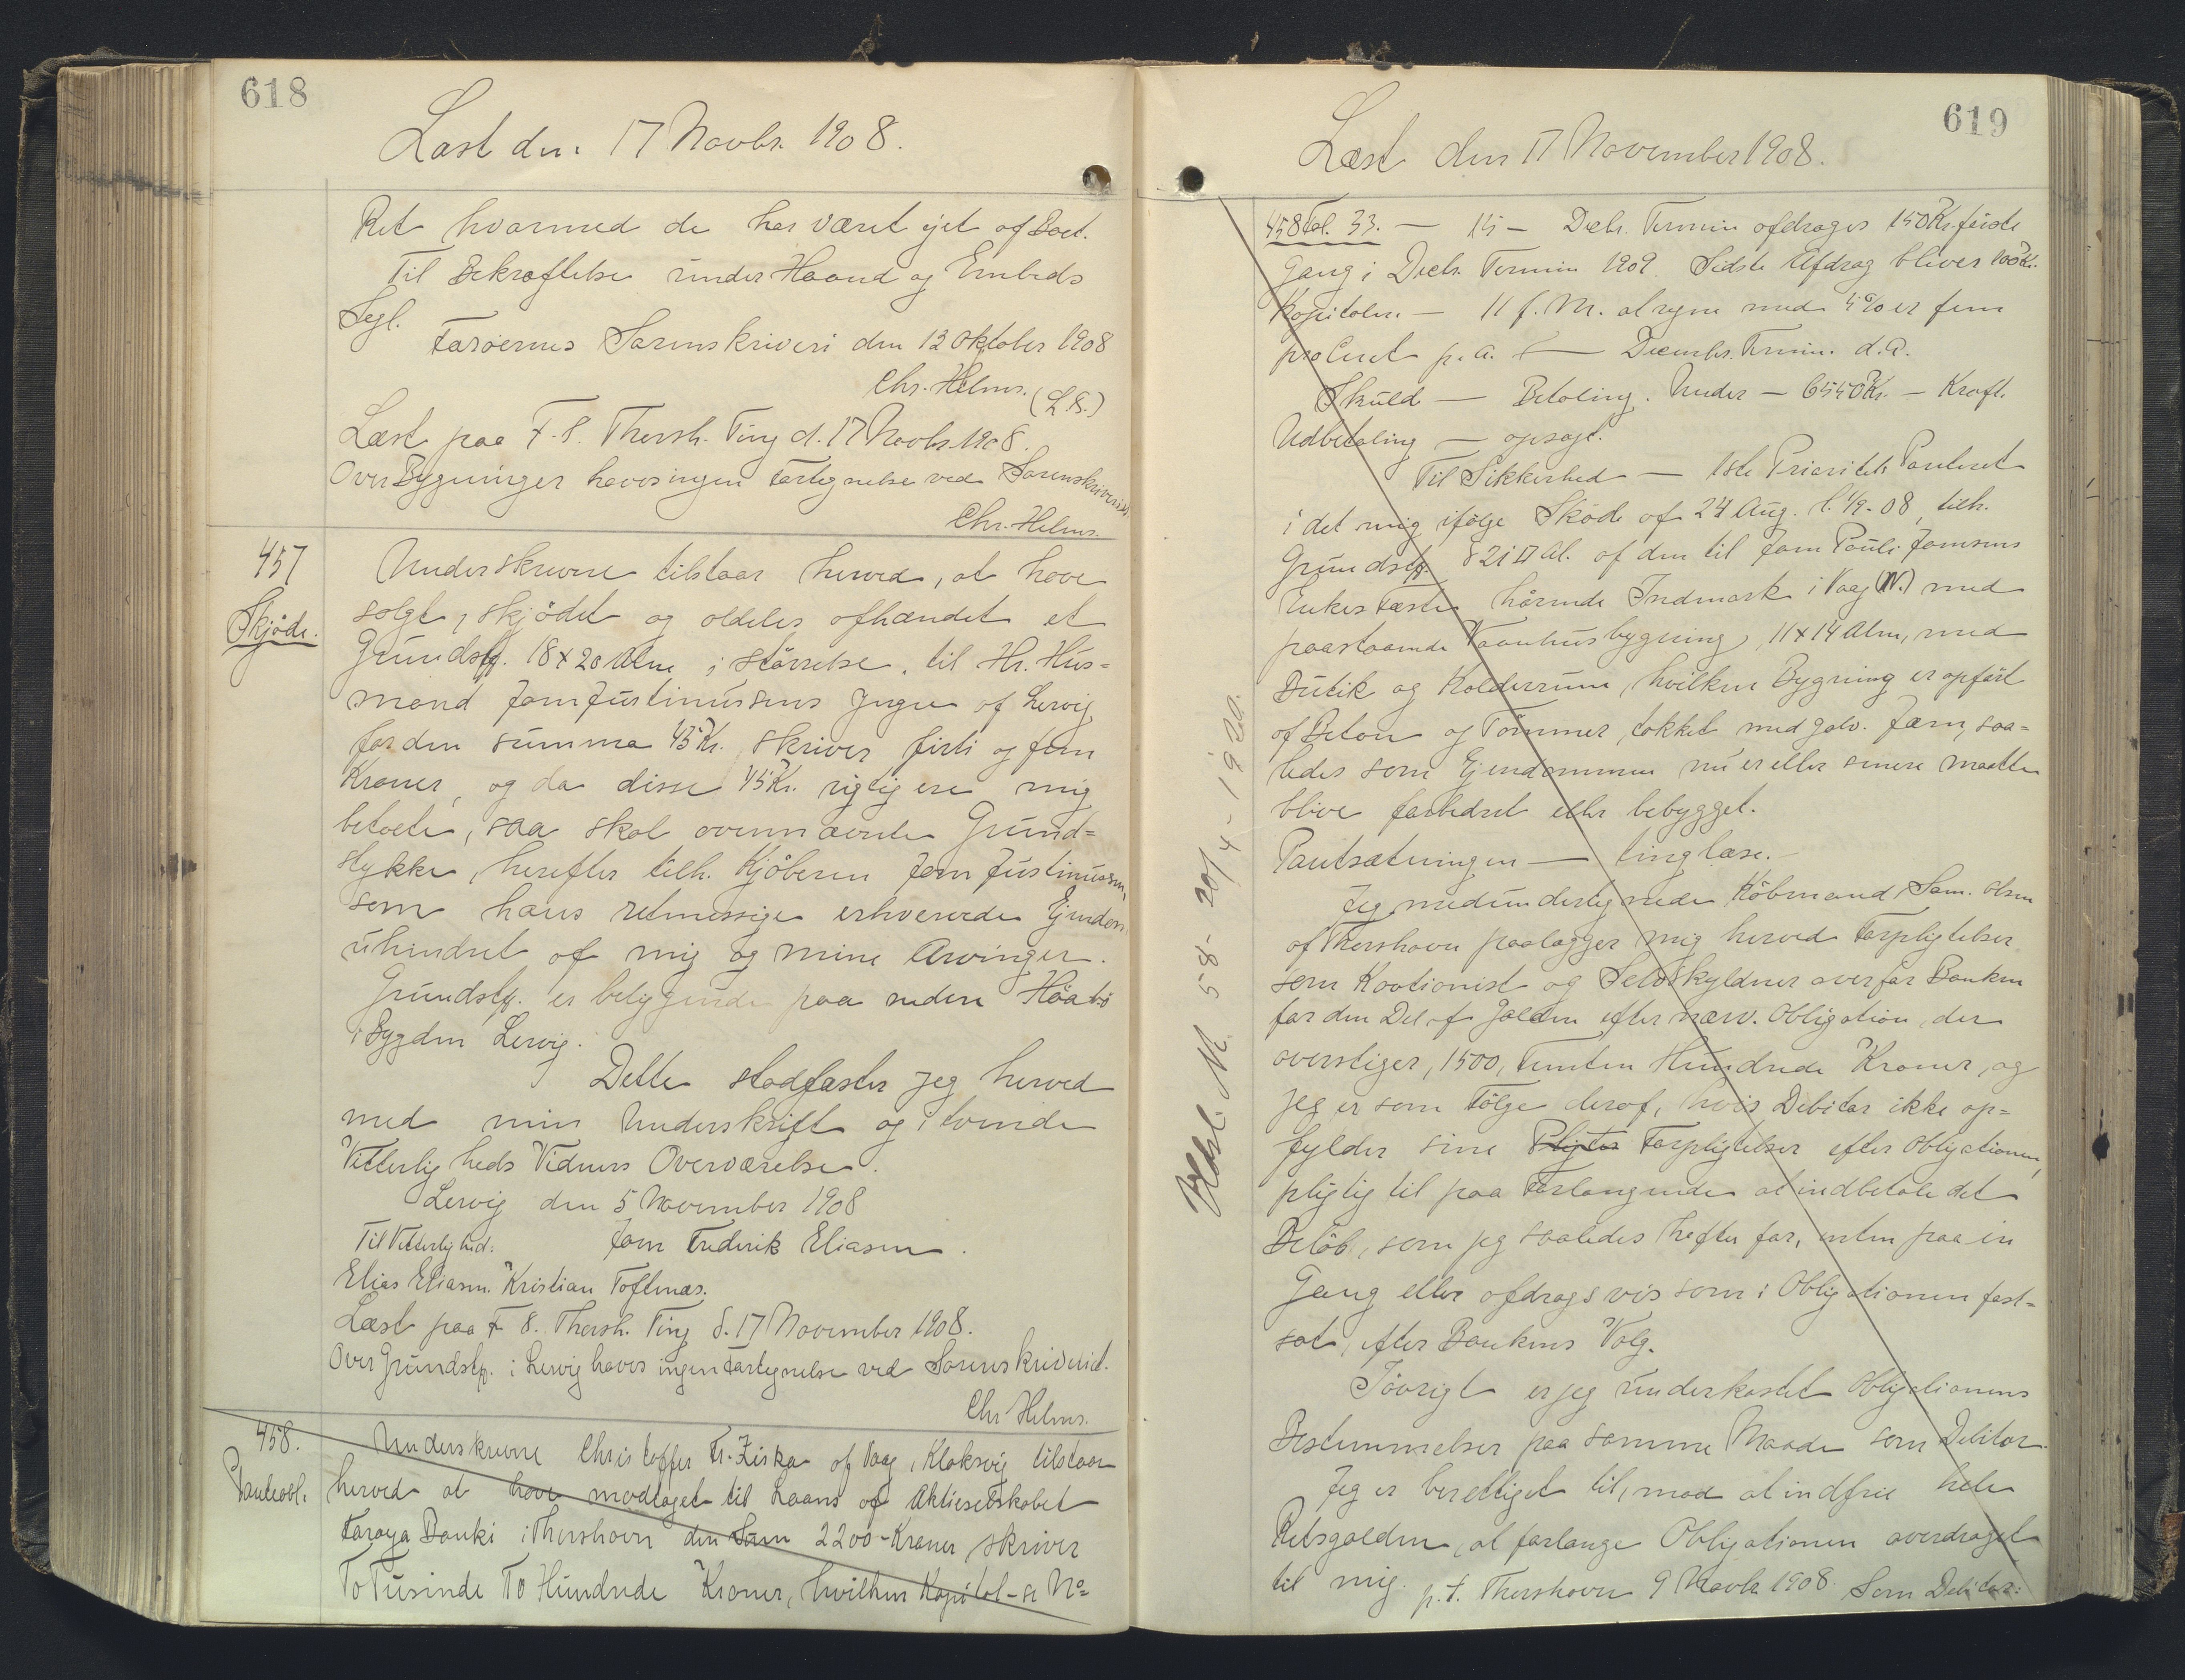 618
Læst den 17 Novbr. 1908.
Ret hvormed de har været ejet af Boet.
Til Bekræftelse under Haand og Embeds
Segl.
Færøernes Sorenskriveri den 13 Oktober 1908
Chr. Helms. (L.S.)
Læst paa F. S. Thorsh. Ting d. 17 Novbr. 1908.
Over Bygninger haves ingen Fortegnelse ved Sorenskriveriet
Chr. Helms.
457
Skjøde.
Underskrevne tilstaar herved, at have
solgt, skjødet og aldeles afhændet et
Grundst. 18 x 20 Alne i størrelse, til Hr. Hus=
mand Joen Justinussens Jogvan af Lervig
for den summa 45 Kr. skriver firti og fem
Kroner, og da disse 45 Kr. rigtig ere mig
betalte, saa skal ovennævnte Grund=
stykke, herefter tilh. Kjøberen Joen Justinussen,
som hans retmessige erhvervede Ejendom
uhindret af mig og mine Arvinger.
Grundst. er beliggende paa nedere
i Bygden Lervig.
Dette stadfæster jeg herved
med min Underskrift og i tvende
Vitterligheds Vidners Overværelse.
Lervig den 5 November 1908
Til Vitterlighed: Joen Frederik Eliasen.
Elias Eliasen. Kristian Toftenæs.
Læst paa F S. Thorsh. Ting d. 17 November 1908.
Over Grundst. i Lervig haves ingen Fortegnelse ved Sorenskriveriet.
Chr Helms.
458.
Panteobl.
Underskrevne Christoffer Fr. Ziska af Vaag, Klaksvig tilstaar
herved at have modtaget til Laans af Aktieselskabet
Føroya Banki i Thorshavn den Sum 2200 - Kroner skriver
To Tusinde To Hundrede Kroner, hvilken Kapital - se No=
619
Læst den 17 November 1908.
458 Fol. 33. — 15 — Decbr. Termin afdrages 150 Kr. første
Gang i Decbr. Termin 1909. Sidste Afdrag bliver 100 Kr.
Kapitalen — 11 f. M. at regne med 5% er fem
procent p. a. — Decembr. Termin. d. A.
Skuld — Betaling. Under — 6550 Kr. — Kraft.
Udbetaling — opsagt.
Til Sikkerhed — 1ste Prioritets Panteret
i det mig ifølge Skøde af 24 Aug. l. 1/9-08, tilh.
Grundst. 821 □ Al. af den til Joen Pouli Joensens
Enkes Fæste hørende Indmark i Vaag (N.) med
paastaaende Vaanhusbygning, 11 x 14 Alen, med
Butik og Kælderrum, hvilken Bygning er opført
af Beton og Tømmer, tækket med galv. Jærn, saa=
ledes som Ejendommen nu er eller senere maatte
blive forbedret eller bebygget.
Pantsætningen — tinglæse.
Jeg medundertegnede Købmand Sam. Olsen
af Thorshavn paalægger mig herved Forpligtelser
som Kautionist og Selvskyldner overfor Banken
for den Del af Gælden efter nærv. Obligation, der
overstiger, 1500, Femten Hundrede Kroner, og
jeg er som Følge deraf, hvis Debitor ikke op=
fylder sine Pligter Forpligtelser efter Obligationen,
pligtig til paa Forlangende at indbetale det
Beløb, som jeg saaledes hæfter for, enten paa en
Gang eller afdragsvis som i Obligationen fast=
sat, efter Bankens Valg.
Iøvrigt er jeg underkastet Obligationens
Bestemmelser paa samme Maade som Debitor.
Jeg er berettiget til, mod at indfrie hele
Restgælden, at forlange Obligationen overdraget
til mig. p. t. Thorshavn 9 Novbr. 1908. Som Debitor:
Udsl. N. 58 - 20/4 - 1920.